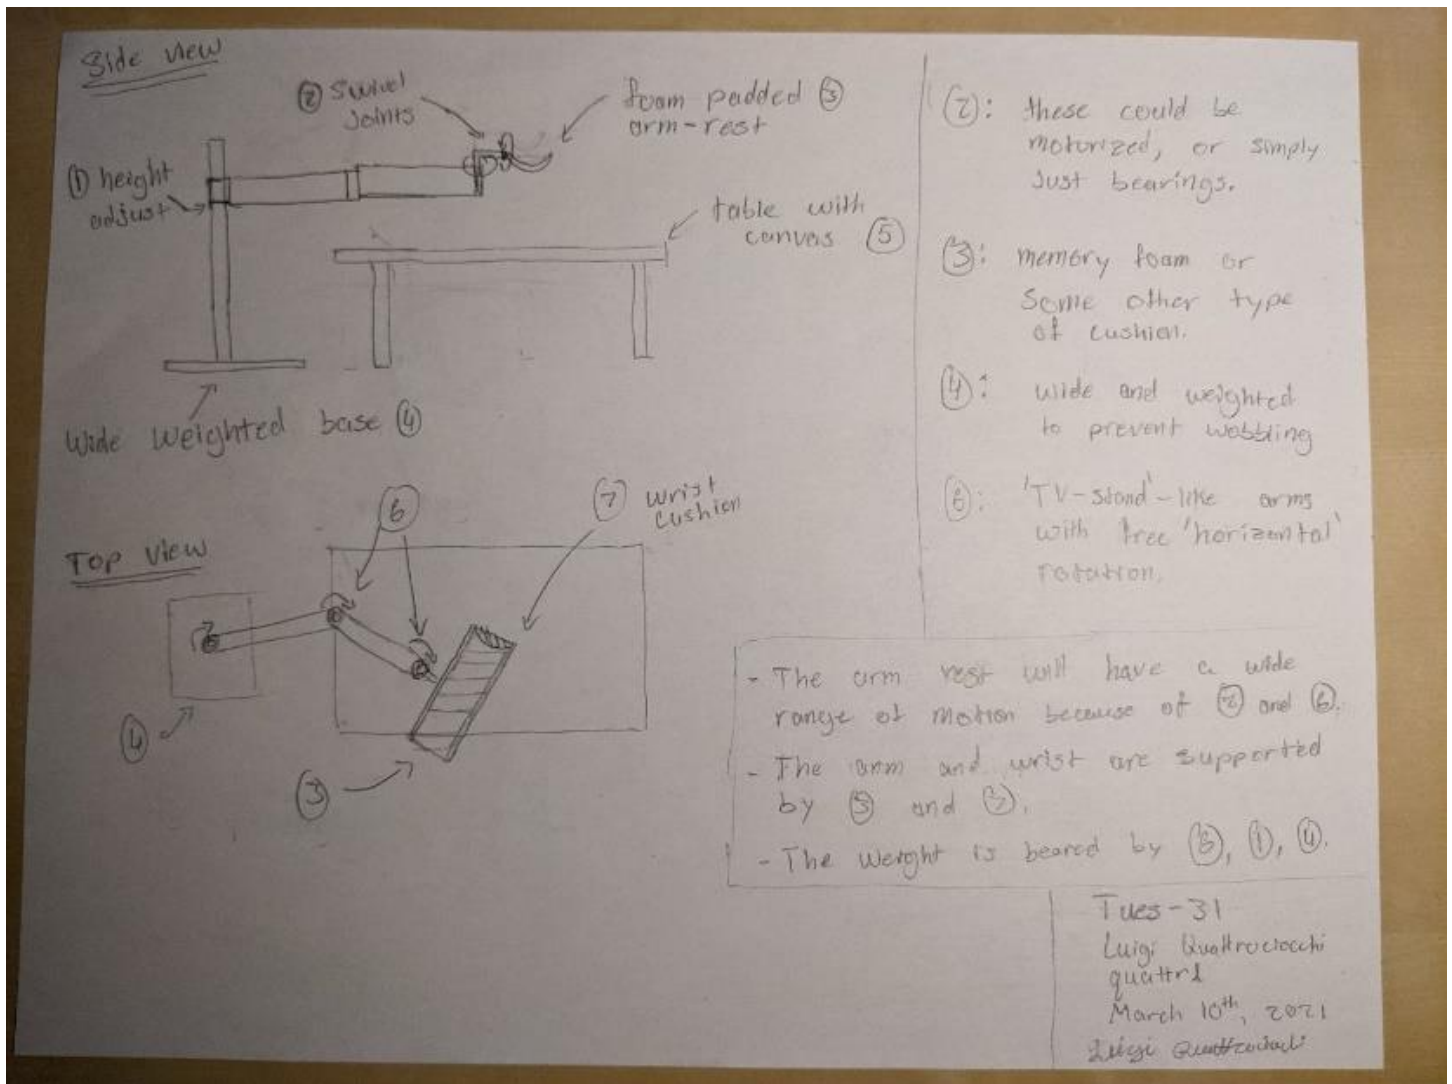 Side view
② Swivel
Joints
foam padded ③
arm-rest
① height
adjust
table with
canvas ⑤
Wide weighted base ④
Top view
⑥
⑦ wrist
cushion
④
③
②: these could be
motorized, or simply
Just bearings.
③: memory foam or
Some other type
of cushion.
④: wide and weighted
to prevent wobbling
⑥: 'TV-stand'-like arms
with free 'horizontal'
rotation.
- The arm rest will have a wide
range of motion because of ② and ⑥.
- The arm and wrist are supported
by ③ and ⑦.
- The weight is beared by ⑥, ①, ④.
Tues-31
Luigi Quattrociocchi
quattrl
March 10th, 2021
Luigi Quattrociocchi